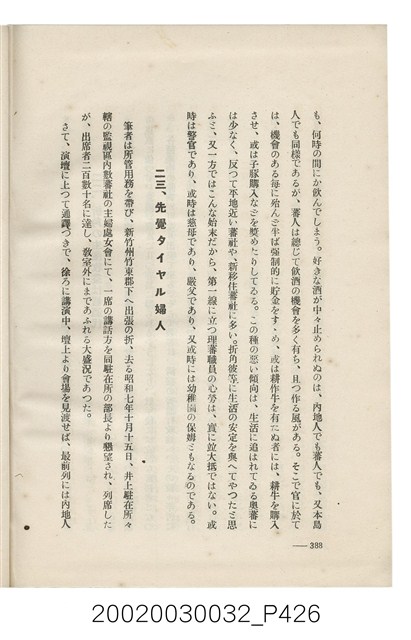 も、何時の間にか飲んでしまう。好きな酒が中々止められぬのは、内地人でも蕃人でも、又本島
人でも同樣であるが、蕃人は總じて飲酒の機會を多く有ち、且つ作る風がある。そこで官に於て
は、機會のある每に殆んど半ば强制的に貯金をすゝめ、或は耕作牛を有たぬ者には、耕牛を購入
させ、或は子豚購入などを奬めたりしてゐる。この種の惡い傾向は、生活に追はれてゐる奧蕃に
は少なく、反つて平地近い蕃社や、新移住蕃社に多い。折角彼等に生活の安定を與へてやつたと思
ふと、又一方ではこんな始末だから、第一線に立つ理蕃職員の心勞は、眞に竝大抵ではない。或
時は警官であり、或時は慈母であり、嚴父であり、又或時には幼稚園の保姆ともなるのである。
二三、先覺タイヤル婦人
筆者は所管用務を帶び、新竹州竹東郡下へ出張の折、去る昭和七年十月十五日、井上駐在所々
轄の監視區内數蕃社の主婦處女會にて、一席の講話方を同駐在所の部長より懇望され、列席した
が、出席者二百數十名に達し、敎室外にまであふれる大盛況であつた。
さて、演壇に上つて通譯つきで、徐ろに講演中、壇上より會場を見渡せば、最前列には内地人
— 388
20020030032_P426